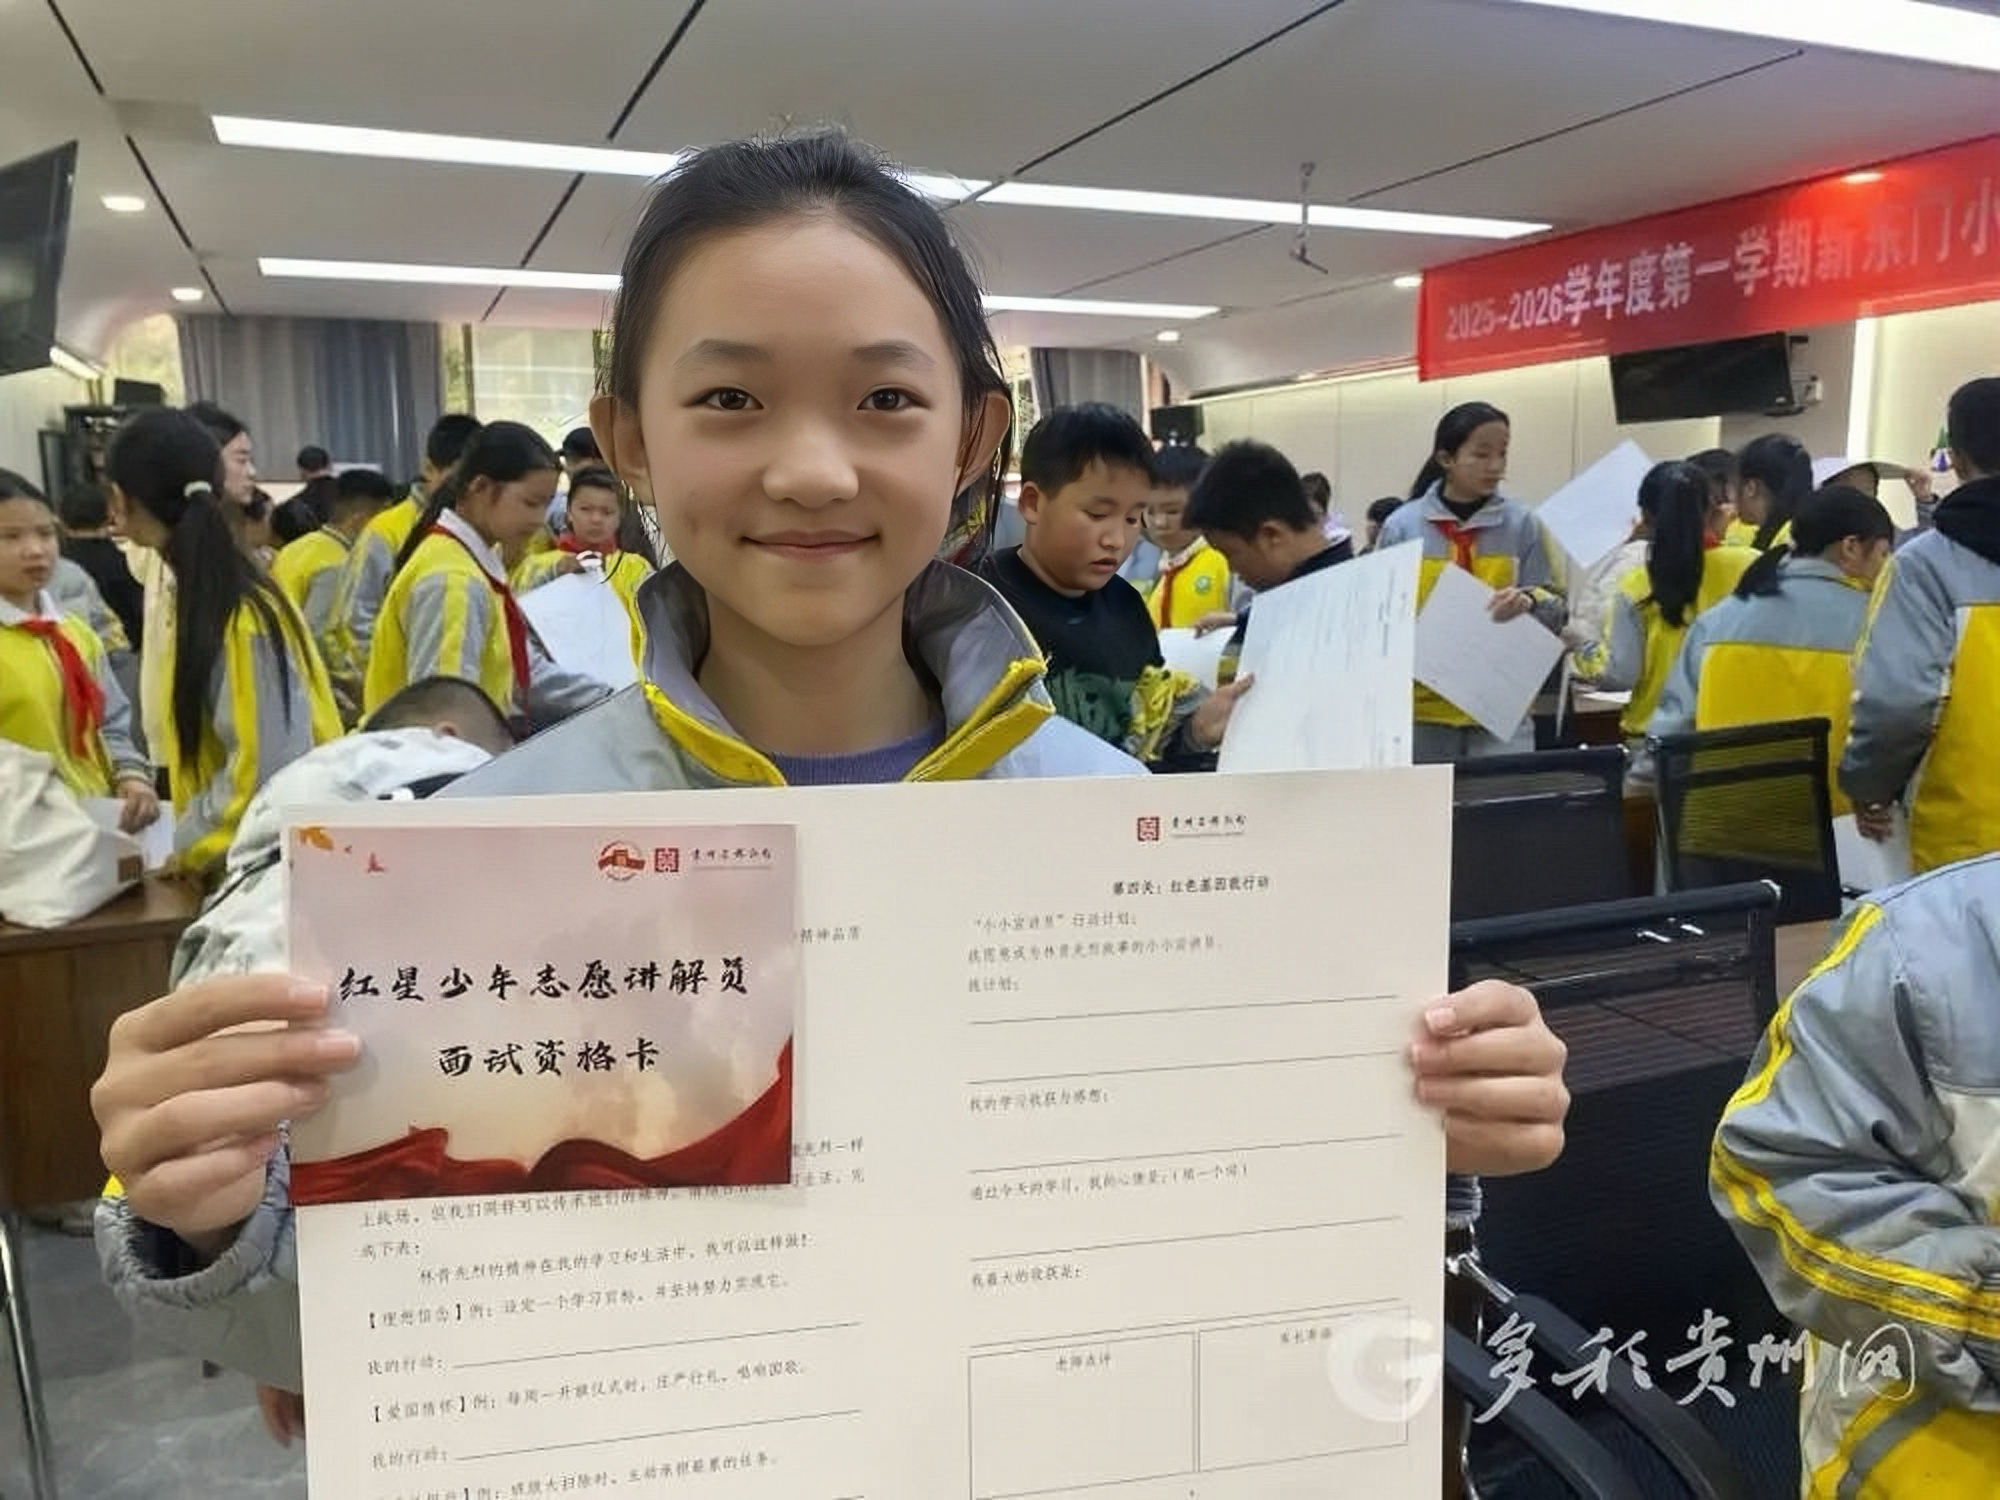 2025-2026学年度第一学期新东门小
红星少年志愿讲解员
面试资格卡
精神品质
先烈一样
上战场，但我们同样可以传承他们的精神。
林青先烈的精神在我的学习和生活中，我可以这样做！
【理想信念】例：设定一个学习目标，并坚持努力实现它。
我的行动：
【爱国情怀】例：每周一升旗仪式时，庄严行礼，唱响国歌。
我的行动：
例：班级大扫除时，主动承担最累的任务。
第四关：红色基因我行动
“小小宣讲员”行动计划：
我愿意成为林青先烈故事的小小宣讲员。
我计划：
我的学习收获与感想：
通过今天的学习，我的心情是：（填一个词）
我最大的收获是：
老师点评
家长寄语
多彩贵州网